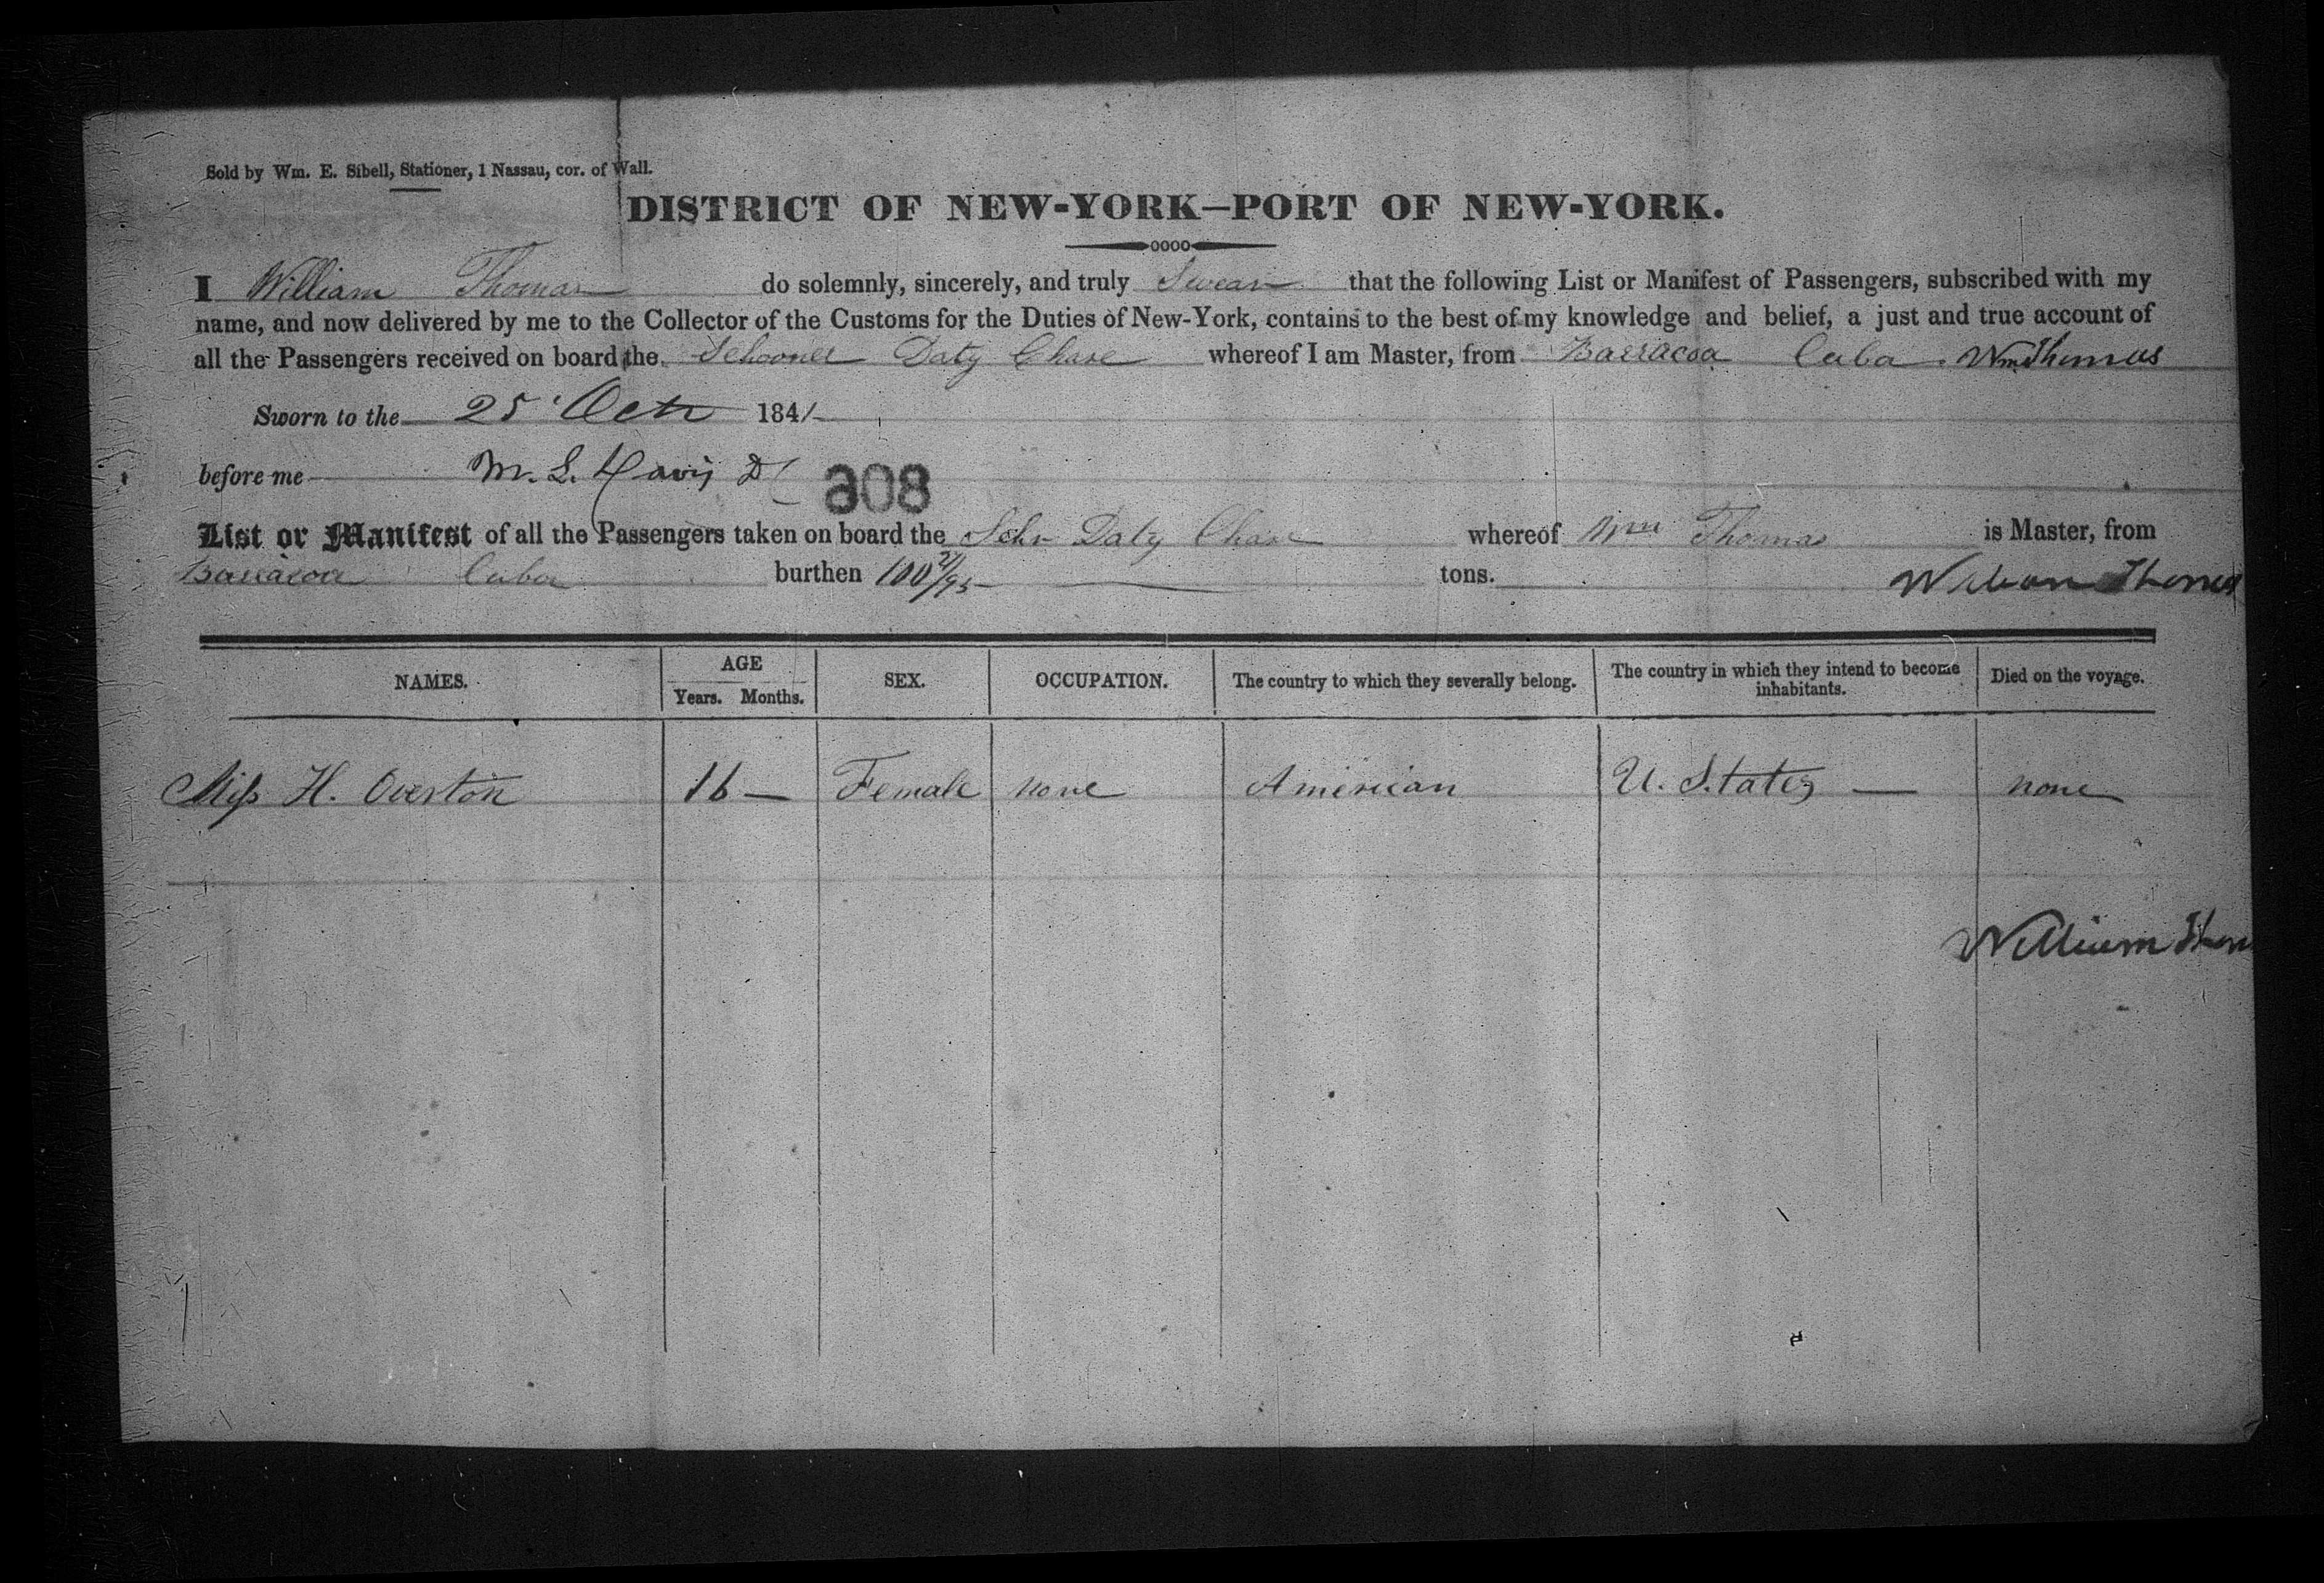 Sold by Wm. E. Sibell, Stationer, 1 Nassau, cor. of Wall.
DISTRICT OF NEW-YORK—PORT OF NEW-YORK.
I William Thomas do solemnly, sincerely, and truly Swear that the following List or Manifest of Passengers, subscribed with my
name, and now delivered by me to the Collector of the Customs for the Duties of New-York, contains to the best of my knowledge and belief, a just and true account of
all the Passengers received on board the Schooner Daty Chase whereof I am Master, from Barracoa Cuba. Wm Thomas
Sworn to the 25 Octr 1841
before me M. L. Davis
908
List or Manifest of all the Passengers taken on board the Schr Daty Chase whereof Wm Thomas is Master, from
Barracoa Cuba burthen 100 21/95 tons. William Thomas
NAMES. AGE Years. Months. SEX. OCCUPATION. The country to which they severally belong. The country in which they intend to become inhabitants. Died on the voyage.
Miss H. Overton 16 — Female none American U. States — none
William Thom